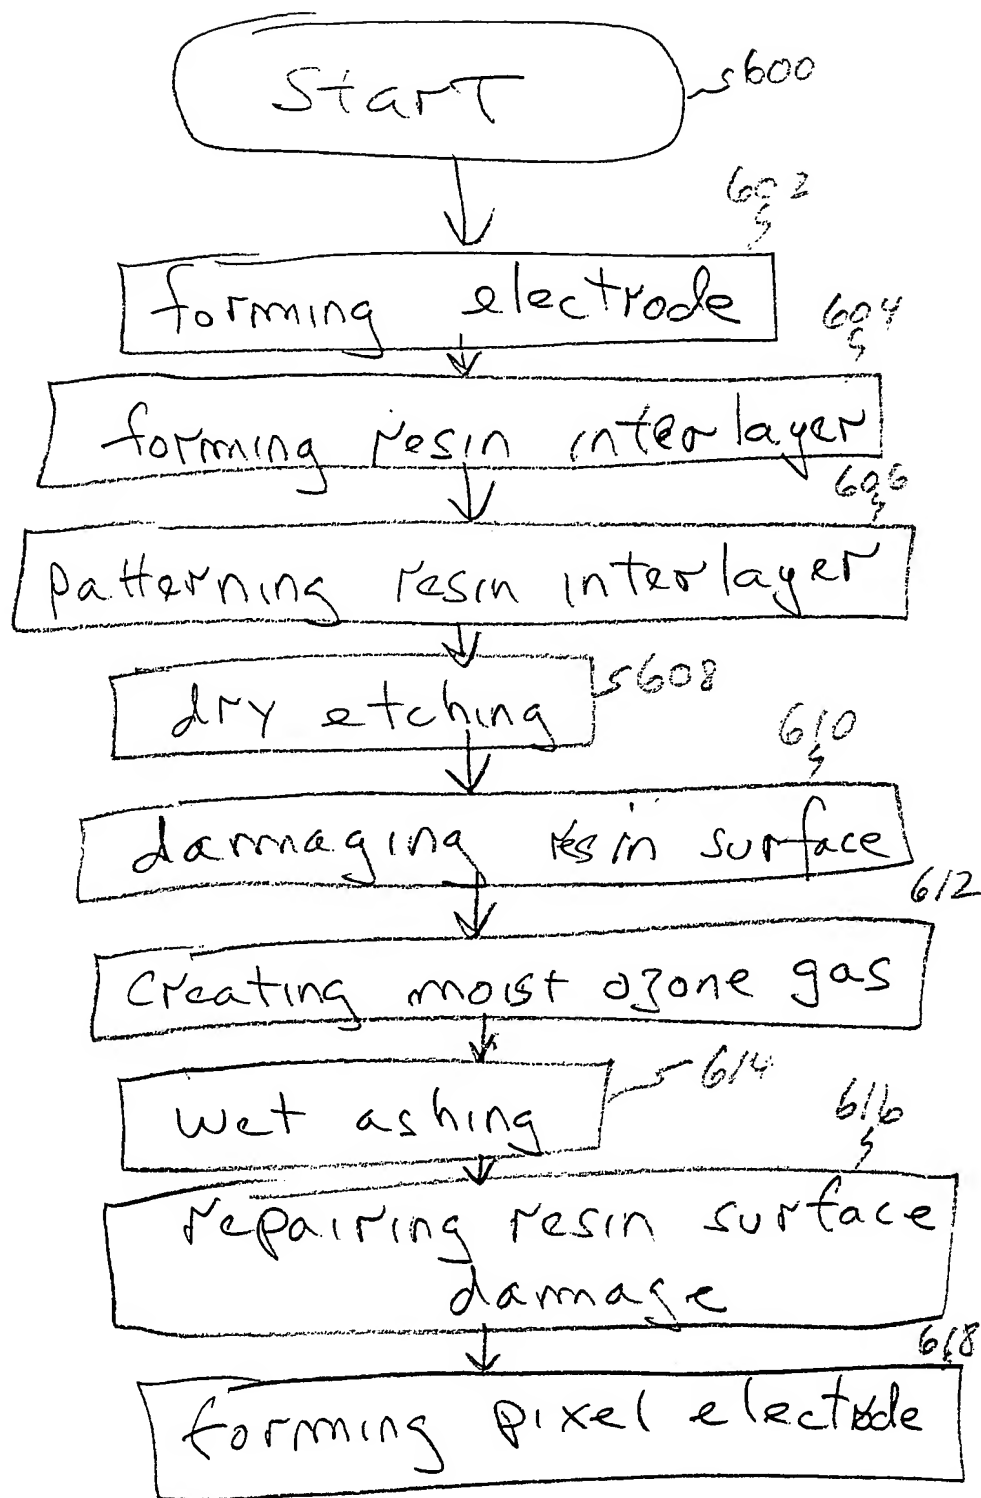 Start
600
602
forming electrode
604
forming resin interlayer
606
patterning resin interlayer
608
dry etching
610
damaging resin surface
612
Creating moist ozone gas
614
wet ashing
616
repairing resin surface
damage
618
forming pixel electrode